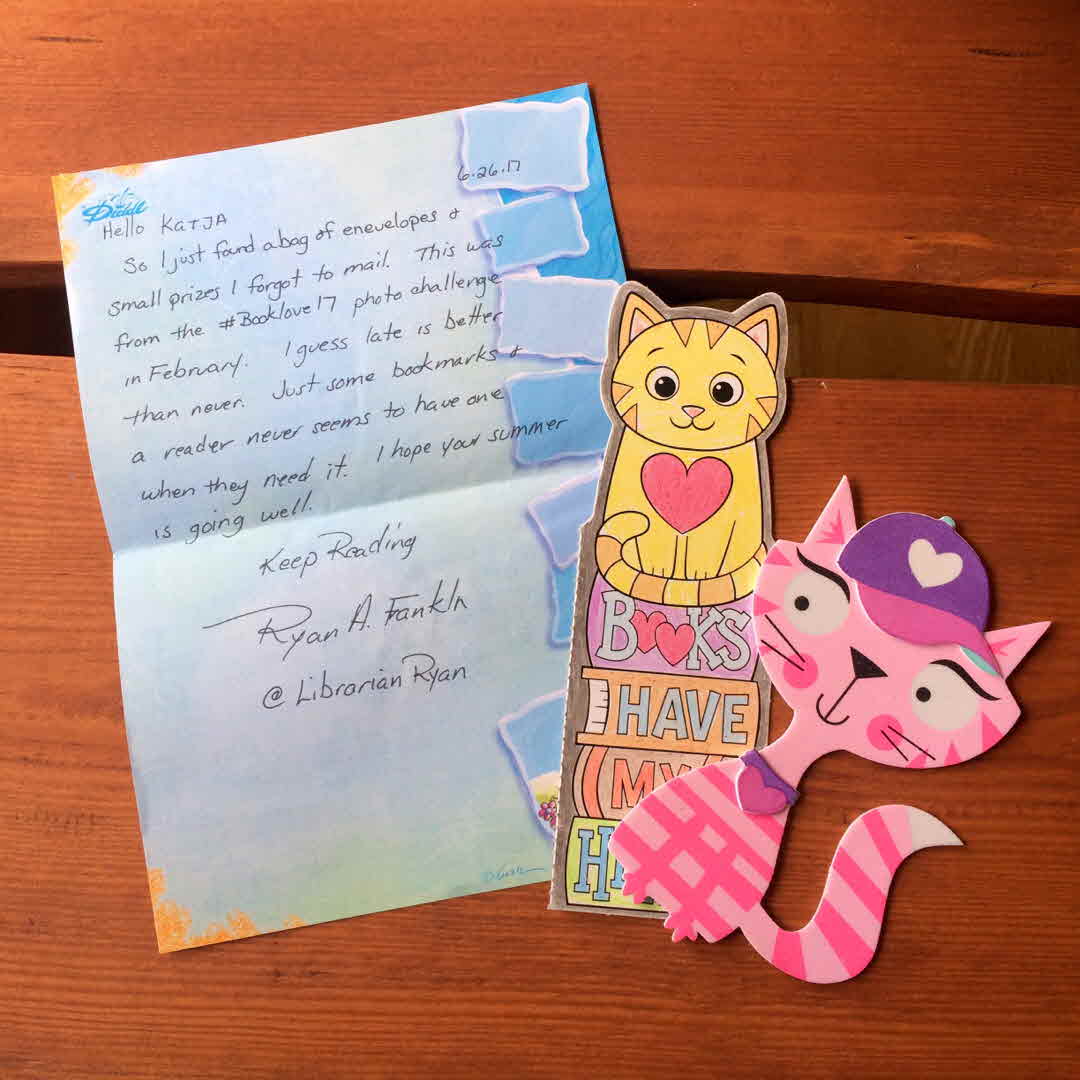 6.26.17
Diddl
Hello KATJA
So I just found a bag of enevelopes &
small prizes I forgot to mail. This was
from the #Booklove17 photo challenge
in February. I guess late is better
than never. Just some bookmarks &
a reader never seems to have one
when they need it. I hope your summer
is going well.
Keep Reading
Ryan A. Frankln
@ Librarian Ryan
BOOKS
HAVE
MY